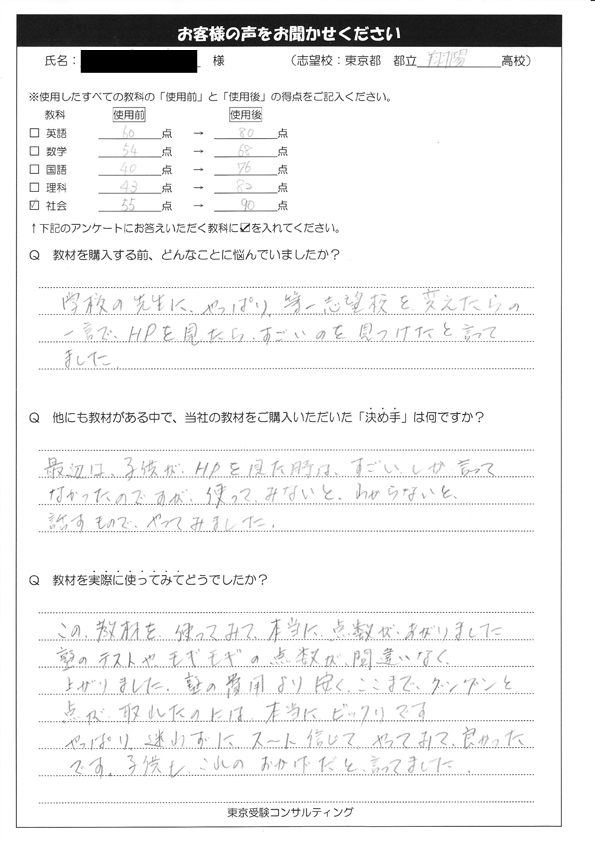 お客様の声をお聞かせください
氏名： 様 （志望校：東京都 都立 翔陽 高校）
※使用したすべての教科の「使用前」と「使用後」の得点をご記入ください。
教科 使用前 使用後
□ 英語 60 点 → 80 点
□ 数学 54 点 → 68 点
□ 国語 40 点 → 76 点
□ 理科 43 点 → 82 点
☑ 社会 55 点 → 90 点
↑下記のアンケートにお答えいただく教科に☑を入れてください。
Q 教材を購入する前、どんなことに悩んでいましたか？
学校の先生に、やっぱり、第一志望校を変えたらの
一言で、HPを見たら、すごいのを見つけたと言って
ました。
Q 他にも教材がある中で、当社の教材をご購入いただいた「決め手」は何ですか？
最初は、子供が、HPを見た時は、すごい、しか言って
なかったのですが、使って、みないと、わからないと、
話すもので、やってみました。
Q 教材を実際に使ってみてどうでしたか？
この、教材を、使ってみて、本当に、点数が、あがりました
塾のテストや、モギモギの点数が、間違いなく、
上がりました。塾の費用より安く、ここまで、グングンと
点が、取れたのには、本当に、ビックリです
やっぱり、迷わずに、スート信じて、やってみて、良かった
です。子供も、これのおかげだと、言ってました。
東京受験コンサルティング